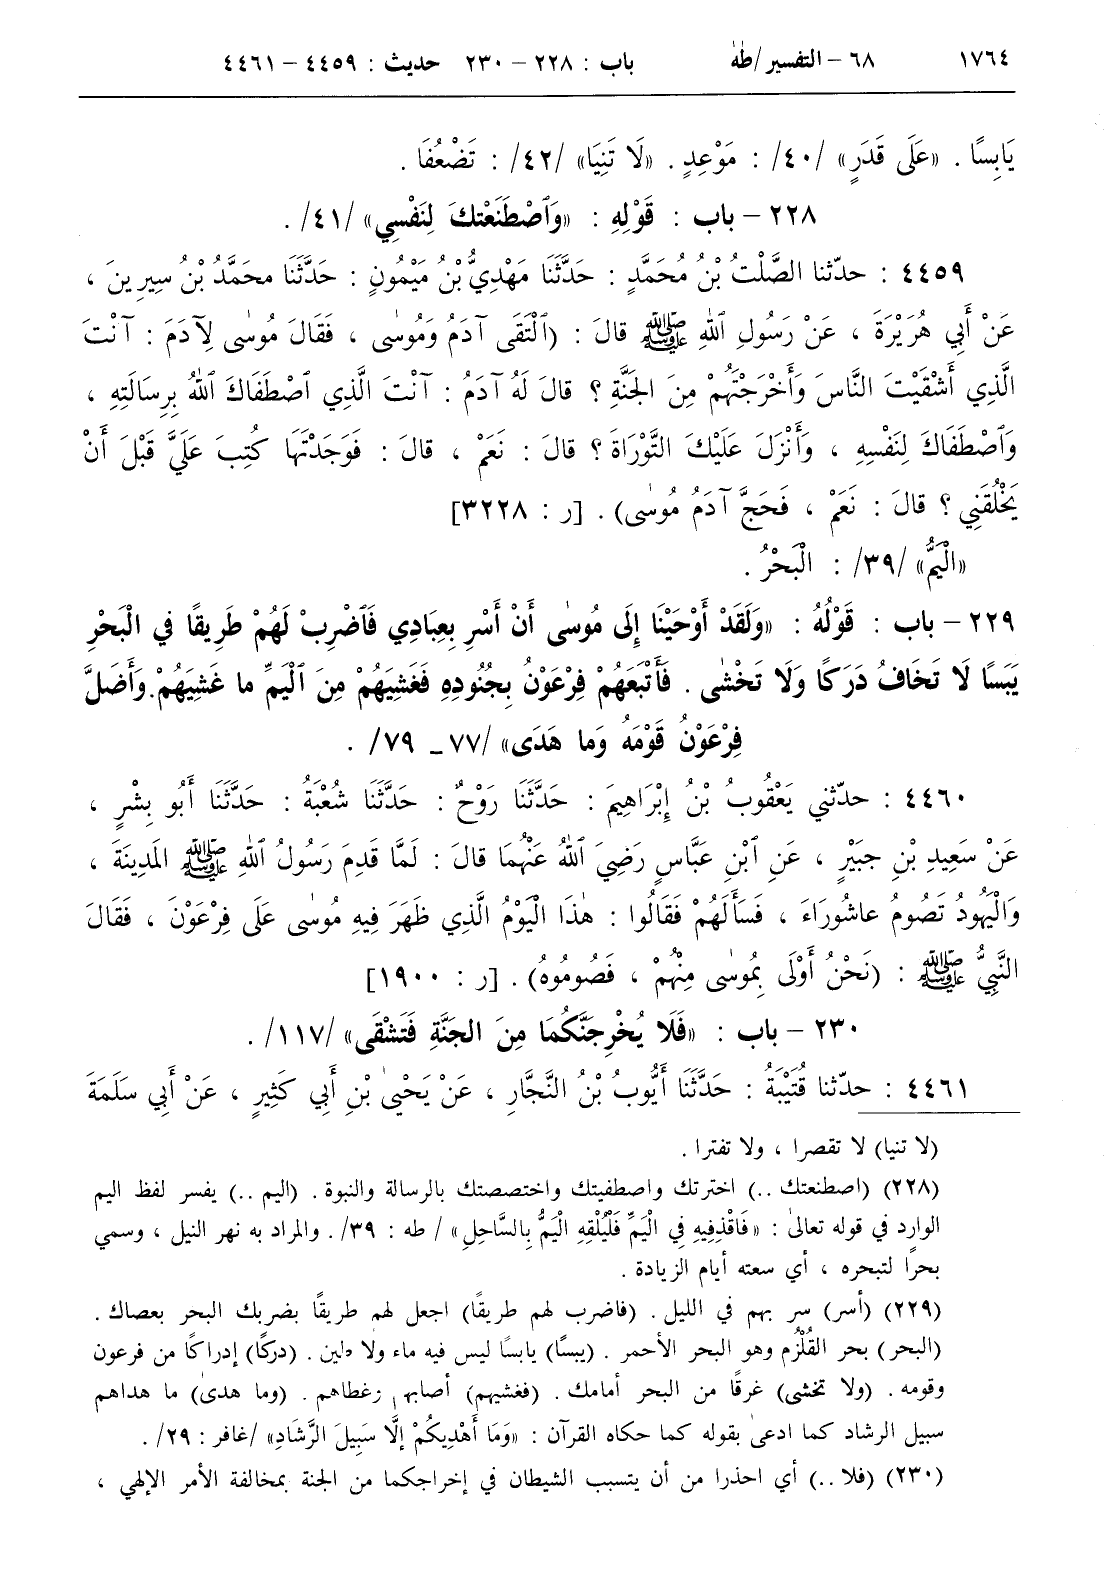 ١٧٦٤ ٦٨ – التفسير /طٰهٰ باب : ٢٢٨ – ٢٣٠ حديث : ٤٤٥٩ – ٤٤٦١
يَابِسًا . «عَلَى قَدَرٍ» /٤٠/ : مَوْعِدٍ . «لَا تَنِيَا» /٤٢/ : تَضْعُفَا .
٢٢٨ – باب : قَوْلِهِ : «وَٱصْطَنَعْتكَ لِنَفْسِي» /٤١/ .
٤٤٥٩ : حدّثنا الصَّلْتُ بْنُ مُحَمَّدٍ : حَدَّثَنَا مَهْدِيُّ بْنُ مَيْمُونٍ : حَدَّثَنَا محَمَّدُ بْنُ سِيرِينَ ،
عَنْ أَبِي هُرَيْرَةَ ، عَنْ رَسُولِ اللهِ ﷺ قالَ : (ٱلْتَقَى آدَمُ وَمُوسٰى ، فَقَالَ مُوسٰى لِآدَمَ : آنْتَ
الَّذِي أَشْقَيْتَ النَّاسَ وَأَخْرَجْتَهُمْ مِنَ الجَنَّةِ ؟ قالَ لَهُ آدَمُ : آنْتَ الَّذِي ٱصْطَفَاكَ ٱللهُ بِرِسَالَتِهِ ،
وَٱصْطَفَاكَ لِنَفْسِهِ ، وَأَنْزَلَ عَلَيْكَ التَّوْرَاةَ ؟ قالَ : نَعَمْ ، قالَ : فَوَجَدْتَهَا كُتِبَ عَلَيَّ قَبْلَ أَنْ
يَخْلُقَنِي ؟ قالَ : نَعَمْ ، فَحَجَّ آدَمُ مُوسٰى) . [ر : ٣٢٢٨]
«الْيَمُّ» /٣٩/ : الْبَحْرُ .
٢٢٩ – باب : قَوْلُهُ : «وَلَقَدْ أَوْحَيْنَا إِلَى مُوسٰى أَنْ أَسْرِ بِعِبَادِي فَٱضْرِبْ لَهُمْ طَرِيقًا فِي الْبَحْرِ
يَبَسًا لَا تَخَافُ دَرَكًا وَلَا تَخْشٰى . فَأَتْبَعَهُمْ فِرْعَوْنُ بِجُنُودِهِ فَغَشِيَهُمْ مِنَ ٱلْيَمِّ ما غَشِيَهُمْ. وَأَضَلَّ
فِرْعَوْنُ قَوْمَهُ وَما هَدَى» /٧٧ – ٧٩/ .
٤٤٦٠ : حدّثني يَعْقُوبُ بْنُ إِبْرَاهِيمَ : حَدَّثَنَا رَوْحٌ : حَدَّثَنَا شُعْبَةُ : حَدَّثَنَا أَبُو بِشْرٍ ،
عَنْ سَعِيدِ بْنِ جبَيْرٍ ، عَنِ ٱبْنِ عَبَّاسٍ رَضِيَ ٱللهُ عَنْهُمَا قالَ : لَمَّا قَدِمَ رَسُولُ ٱللهِ ﷺ المَدِينَةَ ،
وَالْيَهُودُ تَصُومُ عاشُورَاءَ ، فَسَأَلَهُمْ فَقَالُوا : هٰذَا الْيَوْمُ الَّذِي ظَهَرَ فِيهِ مُوسٰى عَلَى فِرْعَوْنَ ، فَقَالَ
النَّبِيُّ ﷺ : (نَحْنُ أَوْلَى بِمُوسٰى مِنْهُمْ ، فَصُومُوهُ) . [ر : ١٩٠٠]
٢٣٠ – باب : «فَلَا يُخْرِجَنَّكُمَا مِنَ الجَنَّةِ فَتَشْقَى» /١١٧/ .
٤٤٦١ : حدّثنا قُتَيْبَةُ : حَدَّثَنَا أَيُّوبُ بْنُ النَّجَّارِ ، عَنْ يَحْيىٰ بْنِ أَبِي كَثِيرٍ ، عَنْ أَبِي سَلَمَةَ
(لا تنيا) لا تقصرا ، ولا تفترا .
(٢٢٨) (اصطنعتك ..) اخترتك واصطفيتك واختصصتك بالرسالة والنبوة . (اليم ..) يفسر لفظ اليم
الوارد في قوله تعالىٰ : «فَاقْذِفِيهِ فِي الْيَمِّ فَلْيُلْقِهِ الْيَمُّ بِالسَّاحِلِ» / طه : ٣٩/ . والمراد به نهر النيل ، وسمي
بحرًا لتبحره ، أي سعته أيام الزيادة .
(٢٢٩) (أسر) سر بهم في الليل . (فاضرب لهم طريقًا) اجعل لهم طريقًا بضربك البحر بعصاك .
(البحر) بحر القُلْزُم وهو البحر الأحمر . (يبسًا) يابسًا ليس فيه ماء ولا طين . (دركًا) إدراكًا من فرعون
وقومه . (ولا تخشى) غرقًا من البحر أمامك . (فغشيهم) أصابهم وغطاهم . (وما هدىٰ) ما هداهم
سبيل الرشاد كما ادعىٰ بقوله كما حكاه القرآن : «وَمَا أَهْدِيكُمْ إِلَّا سَبِيلَ الرَّشَادِ» /غافر : ٢٩/ .
(٢٣٠) (فلا ..) أي احذرا من أن يتسبب الشيطان في إخراجكما من الجنة بمخالفة الأمر الإلهي ،